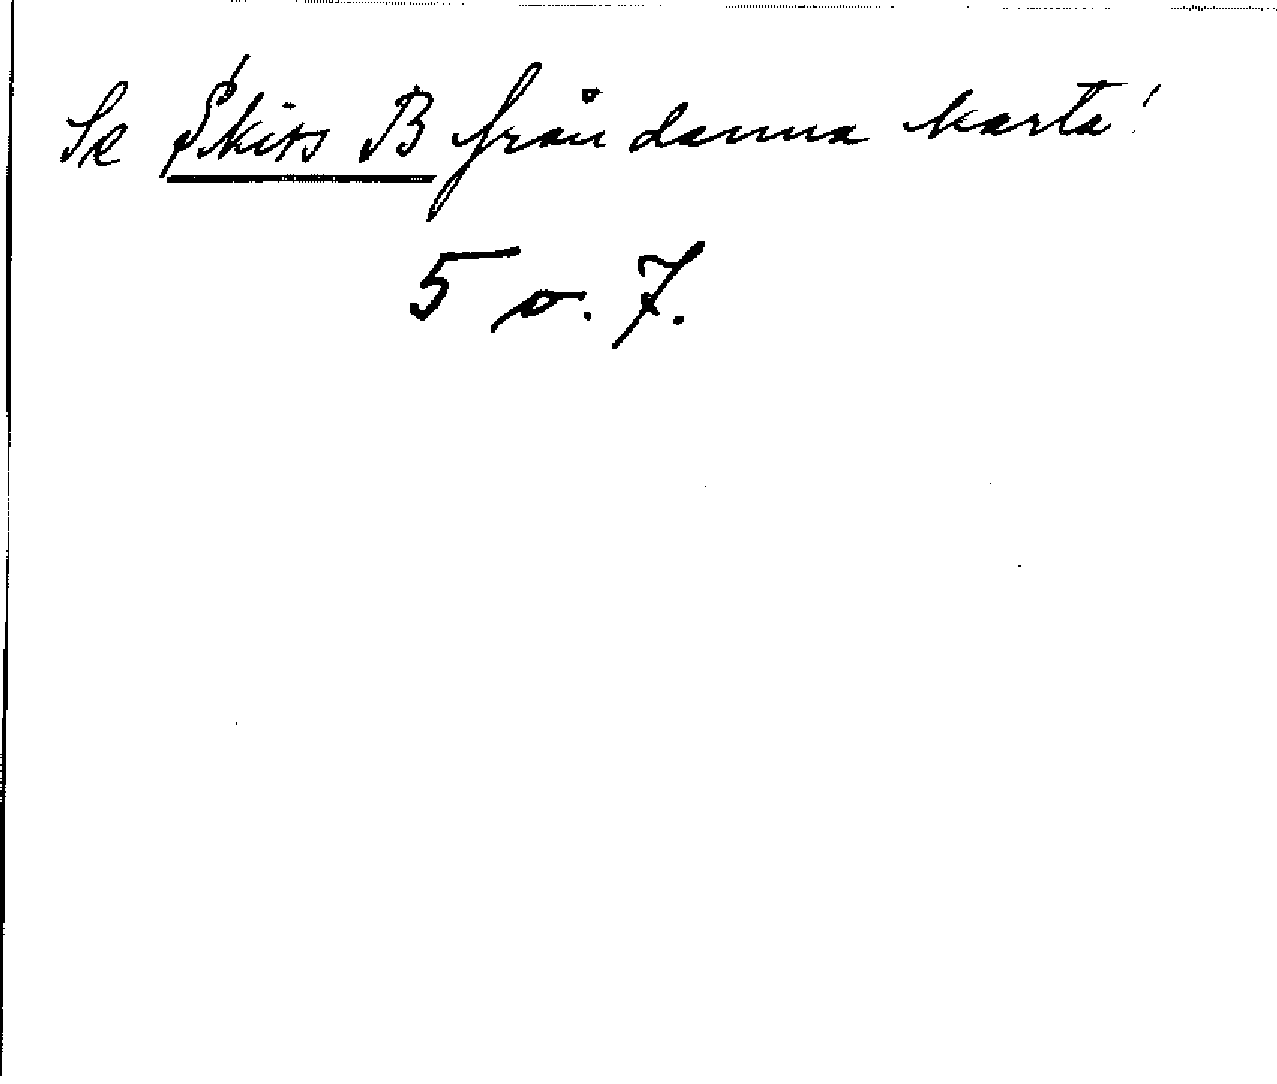 Se Skiss B från denna karta!
5 o. 7.